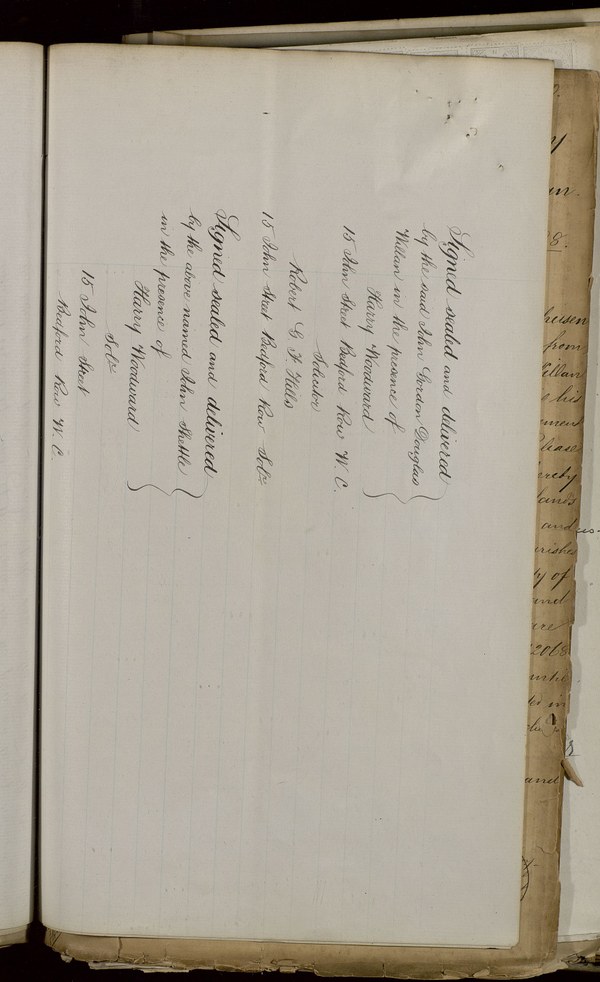 Signed sealed and delivered
by the said John Gordon Douglas
Willan in the presence of
Harry Woodward
15 John Street Bedford Row W. C.
Solicitor
Robert G. F. Hills
15 John Street Bedford Row Solr
Signed sealed and delivered
by the above named John Shettle
in the presence of
Harry Woodward
Solr
15 John Street
Bedford Row W. C.
8.
from
Willan
his
hereby
lands
and
of
and
are
in
and